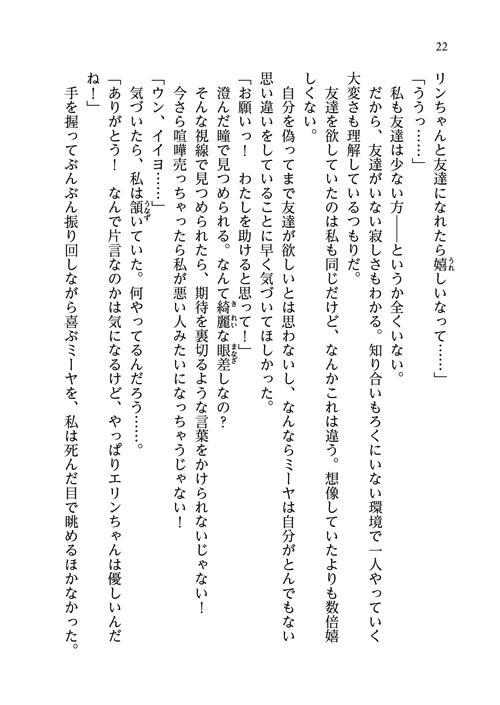 22
リンちゃんと友達になれたら嬉しいなって……」
「ううっ……」
私も友達は少ない方――というか全くいない。
だから、友達がいない寂しさもわかる。知り合いもろくにいない環境で一人やっていく
大変さも理解しているつもりだ。
友達を欲していたのは私も同じだけど、なんかこれは違う。想像していたよりも数倍嬉
しくない。
自分を偽ってまで友達が欲しいとは思わないし、なんならミーヤは自分がとんでもない
思い違いをしていることに早く気づいてほしかった。
「お願いっ！　わたしを助けると思って！」
澄んだ瞳で見つめられる。なんて綺麗な眼差しなの？
そんな視線で見つめられたら、期待を裏切るような言葉をかけられないじゃない！
今さら喧嘩売っちゃったら私が悪い人みたいになっちゃうじゃない！
「ウン、イイヨ……」
気づいたら、私は頷いていた。何やってるんだろう……。
「ありがとう！　なんで片言なのかは気になるけど、やっぱりエリンちゃんは優しいんだ
ね！」
手を握ってぶんぶん振り回しながら喜ぶミーヤを、私は死んだ目で眺めるほかなかった。